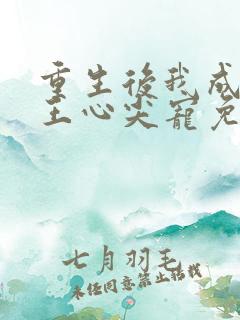 重生後我成
王心尖寵免
七月羽毛
未经同意禁止转载